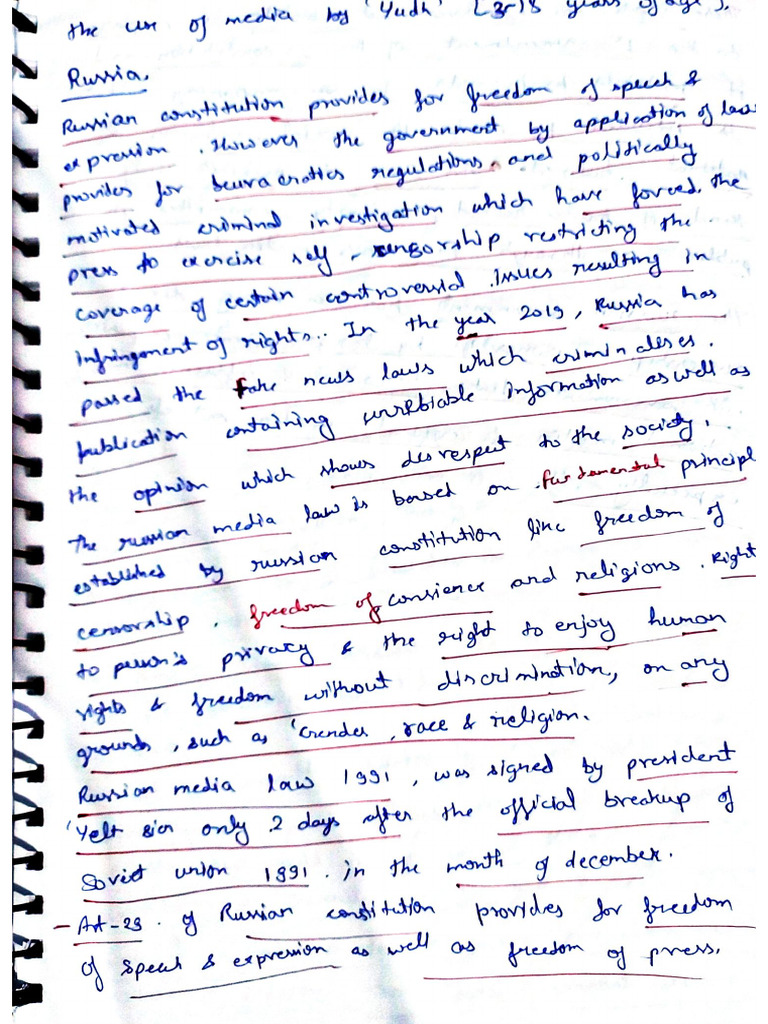 the use of media by 'Yudh' (3-18 years of age).
Russia.
Russian constitution provides for freedom of speech &
expression. However the government by application of law
provides for beuracratics regulations and politically
motivated criminal investigation which have forced the
press to exercise self-sensorship restricting the
coverage of certain controversial issues resulting in
infringement of rights.. In the year 2019, Russia has
passed the fake news laws which criminalises.
publication containing unreliable information as well as
the opinion which shows disrespect to the society.
The russian media law is based on fundamental principl
established by russian constitution line freedom of
censorship. freedom of consience and religions. Right
to person's privacy & the right to enjoy human
rights & freedom without discrimination, on any
grounds, such as 'Gender, race & religion.
Russian media law 1991, was signed by president
'Yeltsin only 2 days after the official breakup of
Soviet union 1991. in the month of december.
- Art-29. of Russian constitution provides for freedom
of speech & expression as well as freedom of press.